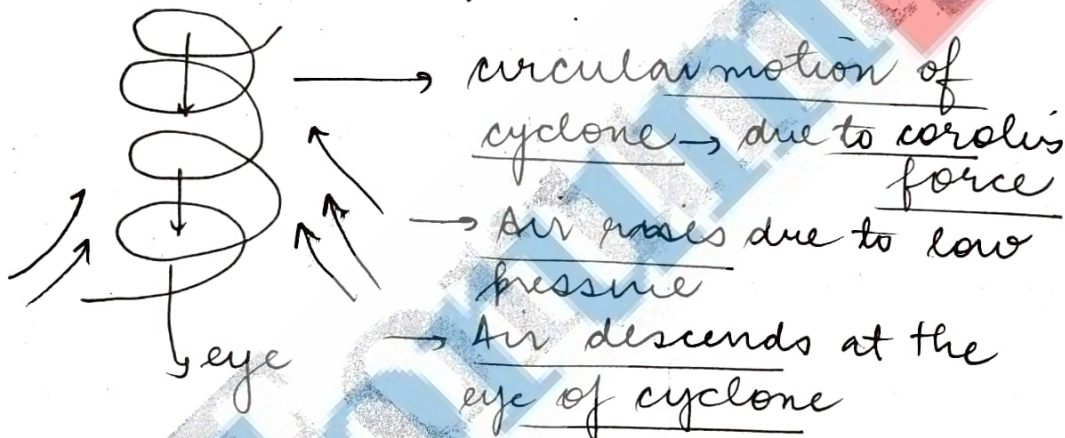 → circular motion of
cyclone → due to corolis
force
→ Air rises due to low
pressure
→ Air descends at the
eye of cyclone
eye